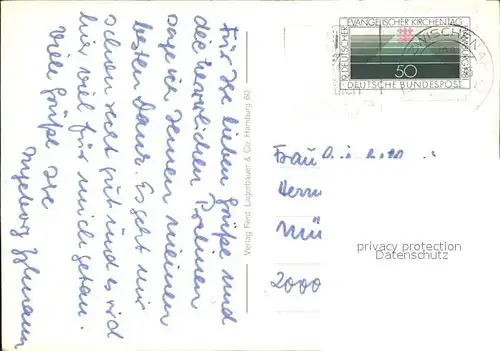 Für die lieben Grüße und
die herrlichen Pralinen
sage ich Ihnen meinen
besten Dank. Es geht mir
schon recht gut und es wird
hier viel für mich getan.
Viele Grüße Ihre
Ingeborg
Verlag Ferd. Lagerbauer & Co. Hamburg 60
19. DEUTSCHER EVANGELISCHER KIRCHENTAG
50
DEUTSCHE BUNDESPOST
ZWISCHENA
Frau
Herrn
Mü
2000
privacy protection
Datenschutz